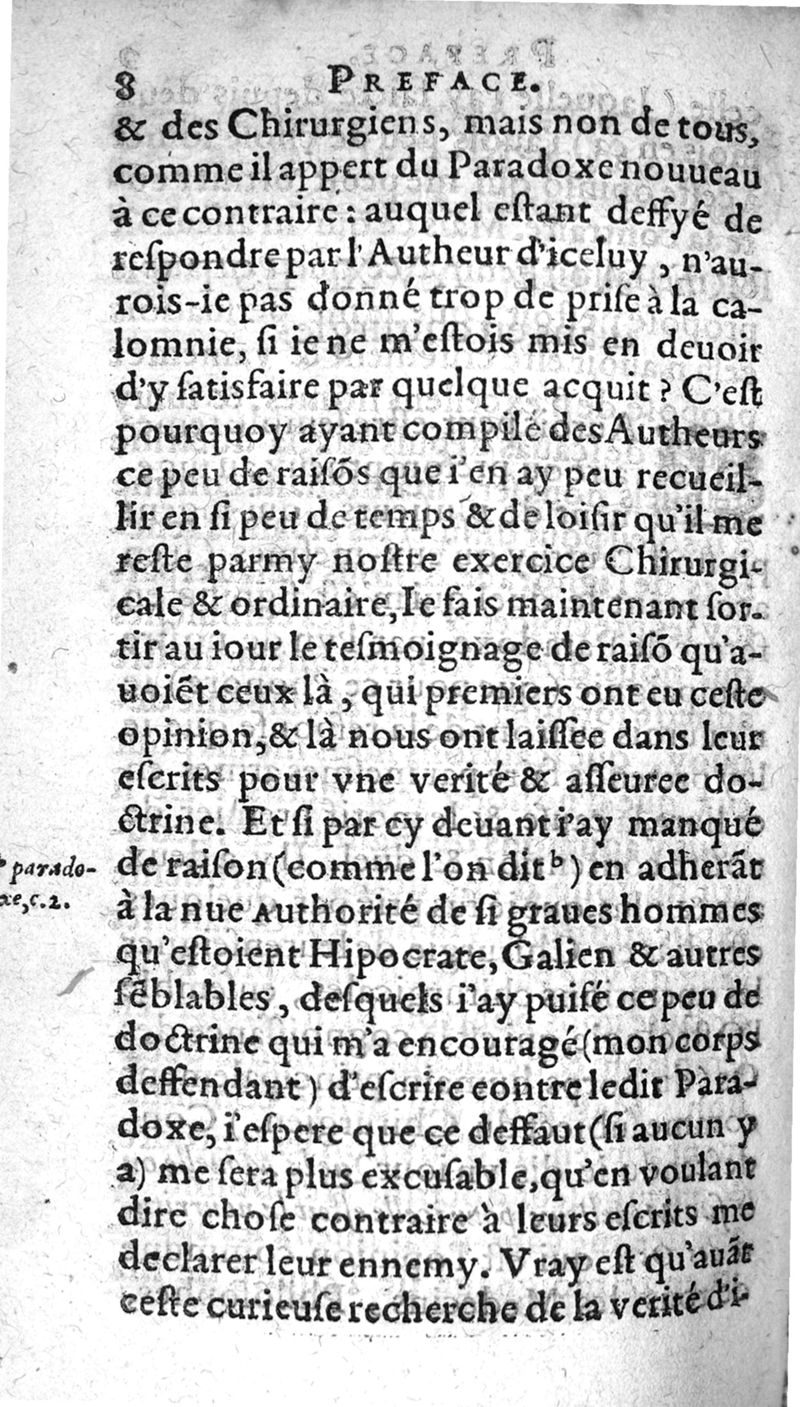 8 PREFACE.
& des Chirurgiens, mais non de tous,
comme il appert du Paradoxe nouueau
à ce contraire : auquel eſtant deffyé de
reſpondre par l'Autheur d'iceluy , n'au-
rois-ie pas donné trop de priſe à la ca-
lomnie, ſi ie ne m'eſtois mis en deuoir
d'y ſatisfaire par quelque acquit ? C'eſt
pourquoy ayant compilé des Autheurs
ce peu de raiſõs que i'en ay peu recueil-
lir en ſi peu de temps & de loiſir qu'il me
reſte parmy noſtre exercice Chirurgi-
cale & ordinaire, Ie fais maintenant ſor-
tir au iour le teſmoignage de raiſõ qu'a-
uoiẽt ceux là , qui premiers ont eu ceſte
opinion, & là nous ont laiſſee dans leur
eſcrits pour vne verité & aſſeuree do-
ctrine. Et ſi par cy deuant i'ay manqué
de raiſon (comme l'on dit ᵇ) en adherãt
ᵇ parado-
xe, c. 2.
à la nue Authorité de ſi graues hommes
qu'eſtoient Hipocrate, Galien & autres
ſẽblables , deſquels i'ay puiſé ce peu de
doctrine qui m'a encouragé (mon corps
deffendant) d'eſcrire contre ledit Para-
doxe, i'eſpere que ce deffaut (ſi aucun y
a) me ſera plus excuſable, qu'en voulant
dire choſe contraire à leurs eſcrits me
declarer leur ennemy. Vray eſt qu'auãt
ceſte curieuſe recherche de la verité d'i-